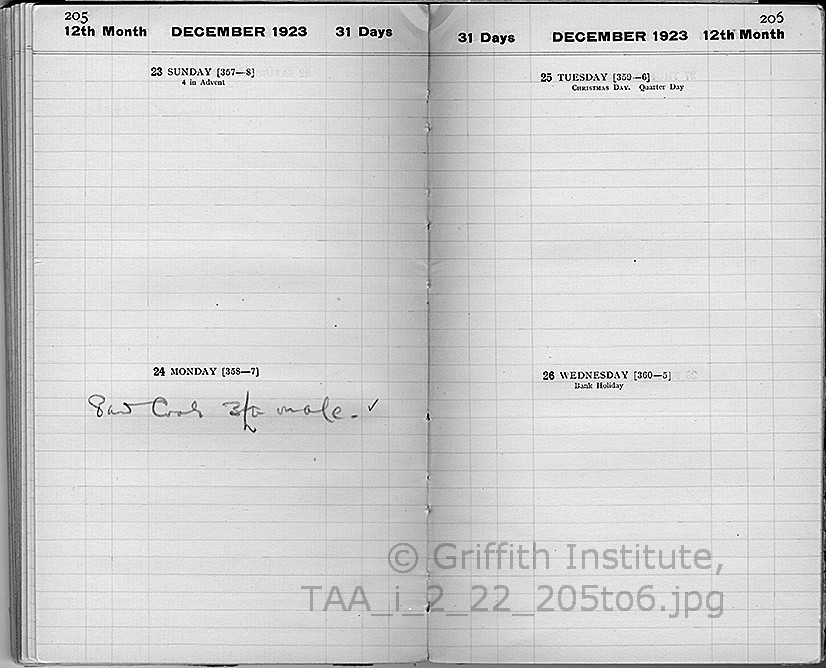 205
12th Month DECEMBER 1923 31 Days
23 SUNDAY [357—8]
4 in Advent
24 MONDAY [358—7]
Cook male. ✓
206
31 Days DECEMBER 1923 12th Month
25 TUESDAY [359—6]
CHRISTMAS DAY. Quarter Day
26 WEDNESDAY [360—5]
Bank Holiday
© Griffith Institute,
TAA_i_2_22_205to6.jpg